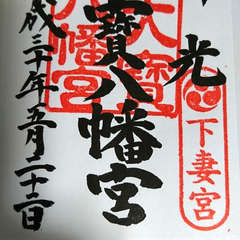 光
下妻宮
寶八幡宮
大寶
八幡宮
成三十年五月二十二日